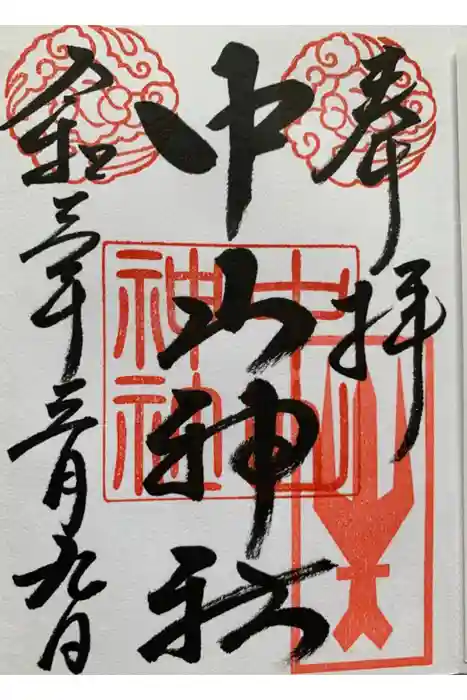 奉拝
中山神社
中山神社
令和三年三月九日